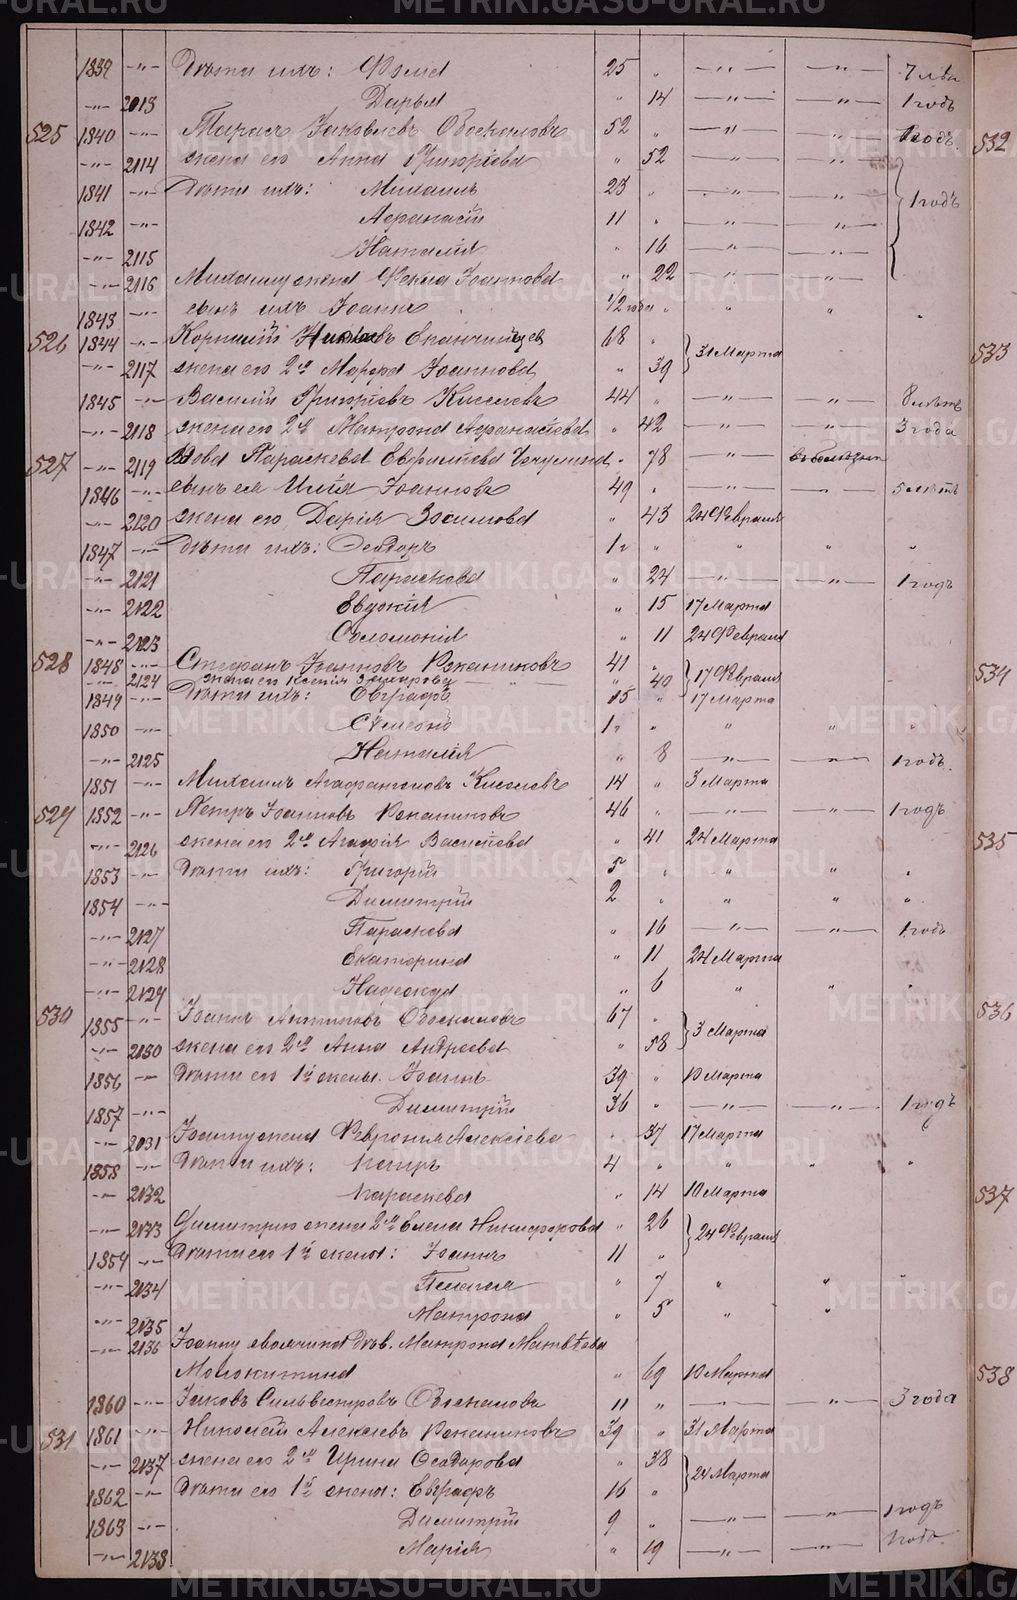 1839 -"- Дѣти ихъ: Фома 25 " -"- -"- 7 лѣтъ
-"- 2013 Дарья " 14 -"- -"- 1 годъ
525 1840 -"- Тарасъ Іаковлевъ Обоскаловъ 52 " -"- -"- 1 годъ. 532
-"- 2114 жена его Анна Григоріева " 52 -"- -"-
1841 -"- Дѣти ихъ: Михаилъ 23 " -"- -"- 1 годъ
1842 -"- Афанасій 11 " -"- -"-
-"- 2115 Наталія " 16 -"- -"-
-"- 2116 Михаилу жена Фекла Іоаннова " 22 -"- "
1843 -"- сынъ ихъ Іоаннъ 1/2 года " " " "
526 1844 -"- Корнилій 68 " 31 Марта 533
-"- 2117 жена его 2я Марфа Іоаннова " 39
1845 -"- Василій Григоріевъ Киселевъ 44 " -"- -"- 8 лѣтъ
-"- 2118 жена его 2я Матрона Афанасіева " 42 -"- -"- 3 года
527 -"- 2119 Вдова Параскева " 78 -"- въ болѣзни
1846 -"- сынъ ея Илія Іоанновъ 49 " -"- -"- 5 лѣтъ
-"- 2120 жена его Дарія Зосимова " 43 24 Февраля
1847 -"- Дѣти ихъ: Ѳеодоръ 1г " " " "
-"- 2121 Параскева " 24 -"- -"- 1 годъ
-"- 2122 Евдокія " 15 17 Марта
-"- 2123 Соломонія " 11 24 Февраля
528 1848 -"- Стефанъ Іоанновъ Рожанниковъ 41 " 17 Февраля 534
-"- 2124 жена его Ксенія Захарова " 40
1849 -"- Дѣти ихъ: Евграфъ 15 " 17 Марта
1850 -"- Сѵмеонъ 1г " " " "
-"- 2125 Наталія " 8 -"- -"- 1 годъ.
1851 -"- Михаилъ Агафангеловъ Киселевъ 14 " 3 Марта
529 1852 -"- Петръ Іоанновъ Рожанниковъ 46 " -"- -"- 1 годъ
-"- 2126 жена его 2я Агафія Василіева " 41 24 Марта 535
1853 -"- Дѣти ихъ: Григорій 5 " " " "
1854 -"- Димитрій 2 " " " "
-"- 2127 Параскева " 16 -"- -"- 1 годъ
-"- 2128 Екатерина " 11 24 Марта
-"- 2129 Надежда " 6 " " "
530 1855 -"- Іоаннъ Антиповъ Обоскаловъ 67 " 3 Марта 536
-"- 2130 жена его 2я Анна Андреева " 58
1856 -"- Дѣти его 1й жены: Іоаннъ 39 " 10 Марта
1857 -"- Димитрій 36 " -"- -"- 1 годъ
-"- 2031 Іоанну жена Февронія Алексіева " 37 17 Марта
1858 -"- Дѣти ихъ: Петръ 4 " " " "
-"- 2132 Параскева " 14 10 Марта 537
-"- 2133 Димитрію жена 2я Елена Никифорова " 26 24 Февраля
1859 -"- Дѣти его 1й жены: Іоаннъ 11 "
-"- 2134 Пелагея " 7 " " "
-"- 2135 Матрона " 5 " "
-"- 2136 Іоанну своячина Дѣв. Матрона Матвѣева
Молокитина " 69 10 Марта 538
1860 -"- Іаковъ Сильвестровъ Обоскаловъ 11 " -"- -"- 3 года
531 1861 -"- Николай Алексіевъ Рожанниковъ 39 " 31 Марта
-"- 2137 жена его 2я Ирина Ѳеодорова " 38 24 Марта
1862 -"- Дѣти его 1й жены: Евграфъ 16 "
1863 -"- Димитрій 9 " -"- -"- 1 годъ
-"- 2138 Марія " 19 -"- -"- 1 годъ.
METRIKI.GASO-URAL.RU